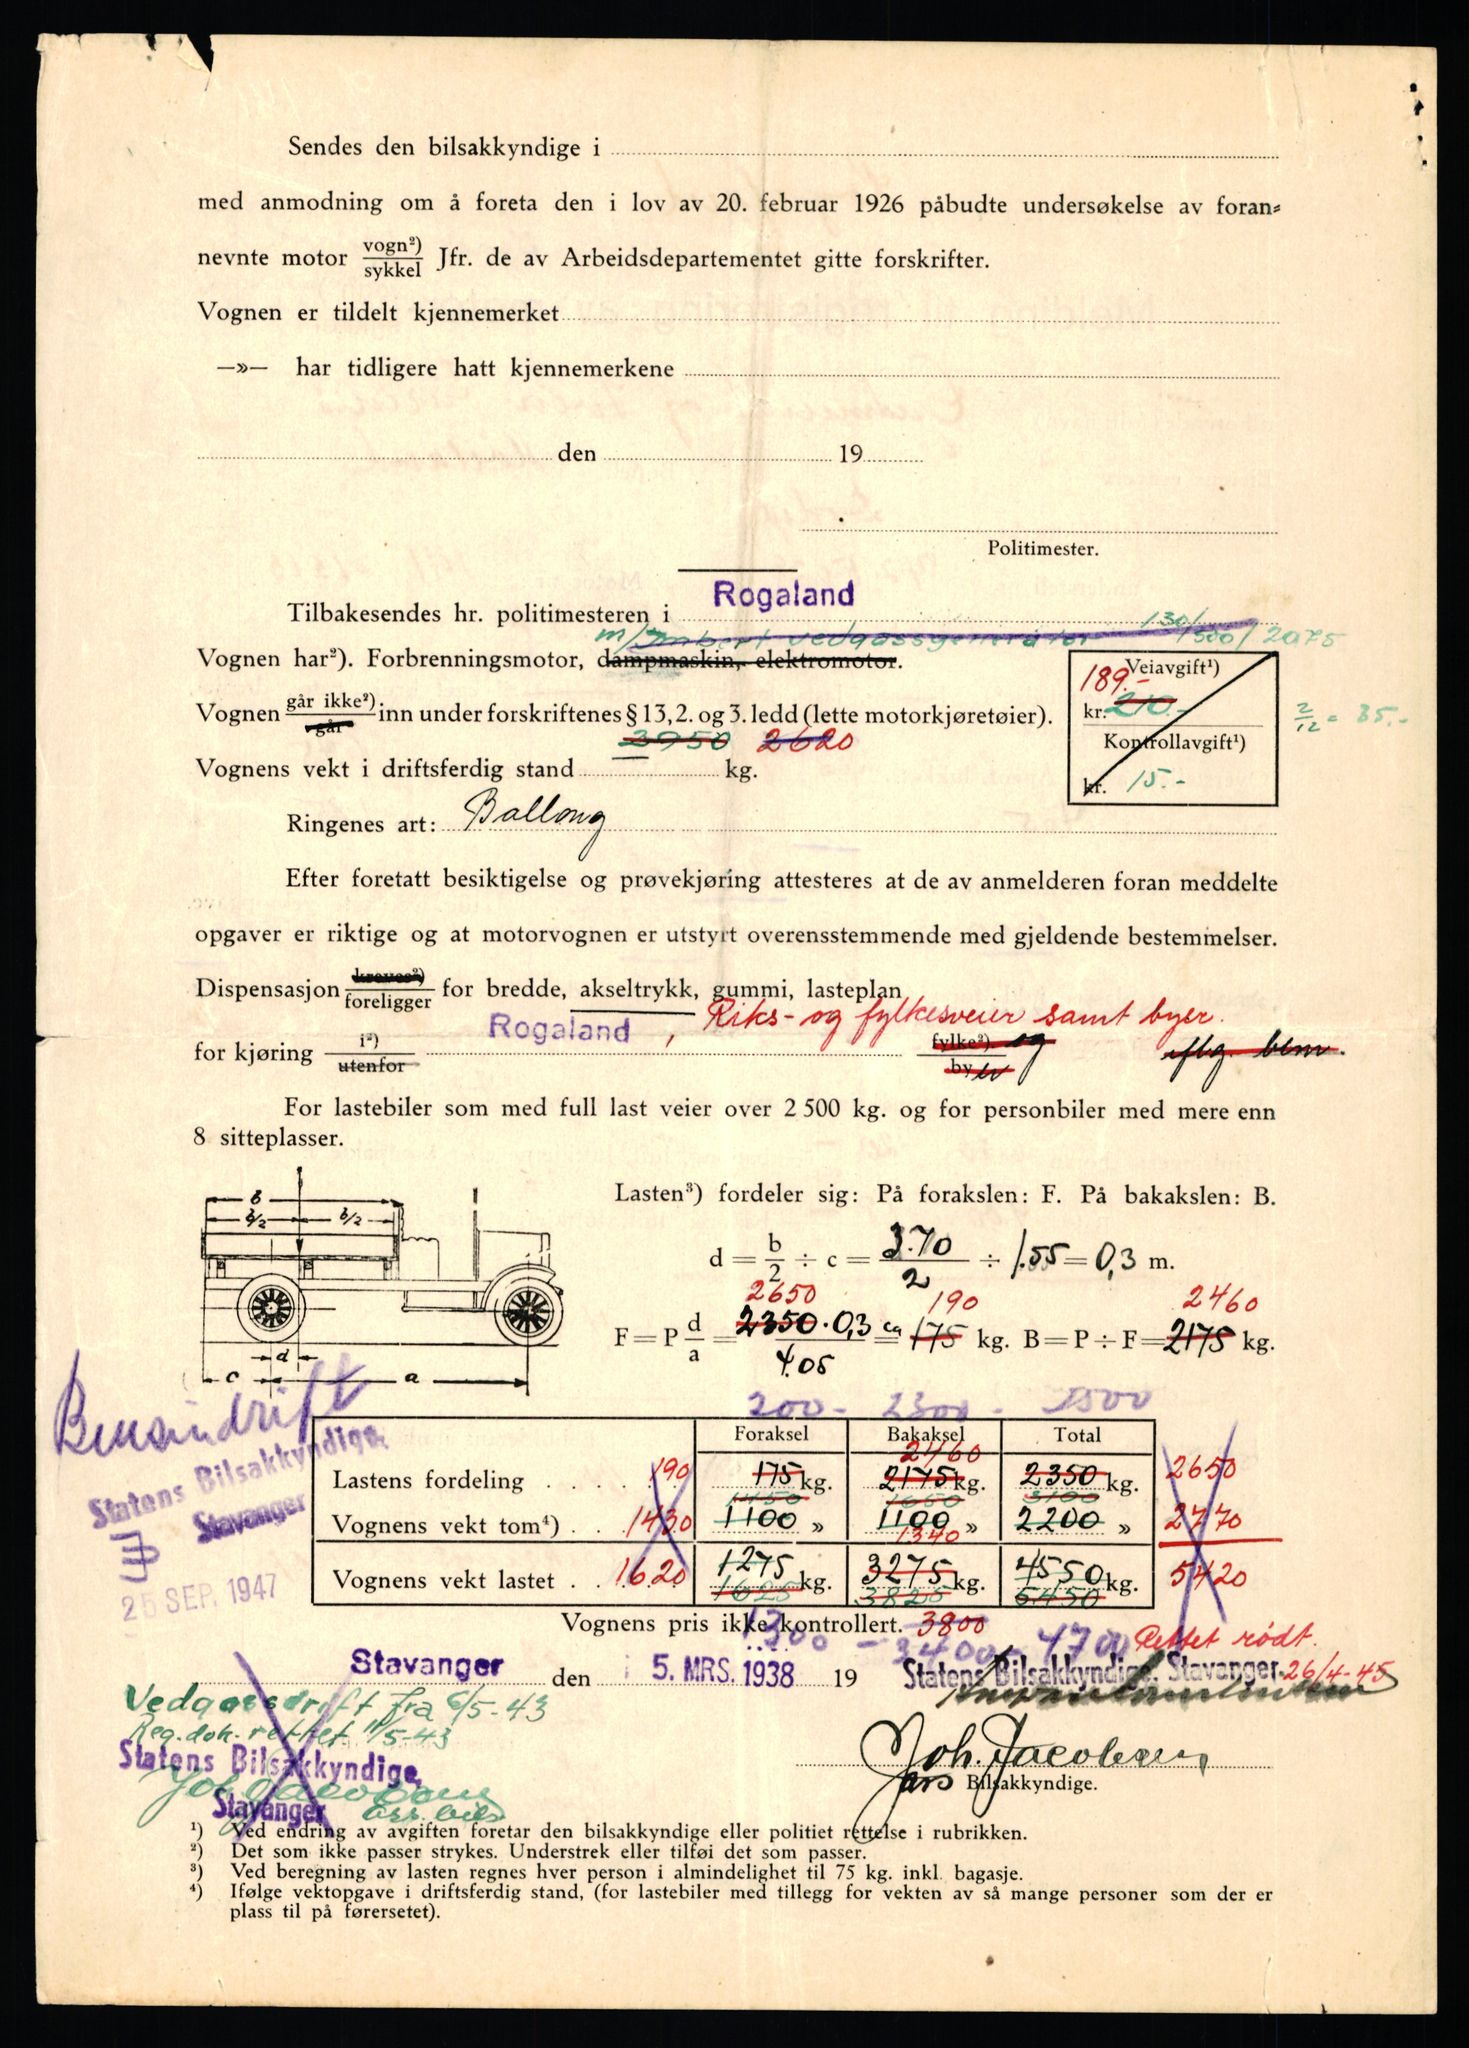 Sendes den bilsakkyndige i
med anmodning om å foreta den i lov av 20. februar 1926 påbudte undersøkelse av foran=
nevnte motor vogn²) / sykkel Jfr. de av Arbeidsdepartementet gitte forskrifter.
Vognen er tildelt kjennemerket
—»— har tidligere hatt kjennemerkene
den 19
Politimester.
Tilbakesendes hr. politimesteren i Rogaland
m/Imbert vedgassgenerator 130/1500/2075
Vognen har²). Forbrenningsmotor, dampmaskin, elektromotor.
Veiavgift¹)
189.-
kr. 210.-
Vognen går ikke²) / går inn under forskriftenes § 13, 2. og 3. ledd (lette motorkjøretøier).
2/12 = 35.-
Kontrollavgift¹)
kr. 15.-
3950 2620
Vognens vekt i driftsferdig stand kg.
Ringenes art: Ballong
Efter foretatt besiktigelse og prøvekjøring attesteres at de av anmelderen foran meddelte
opgaver er riktige og at motorvognen er utstyrt overensstemmende med gjeldende bestemmelser.
Dispensasjon kreves²) / foreligger for bredde, akseltrykk, gummi, lasteplan
Rogaland, Riks- og fylkesveier samt byer.
for kjøring i²) / utenfor fylke²). og / by er iflg. bem.
For lastebiler som med full last veier over 2 500 kg. og for personbiler med mere enn
8 sitteplasser.
Lasten³) fordeler sig: På forakslen: F. På bakakslen: B.
b
b/2 b/2
d = b/2 ÷ c = 3.70/2 ÷ 1.55 = 0,3 m.
2650 190 2460
F = P d/a = 2350 · 0,3 / 4.05 = ca 175 kg. B = P ÷ F = 2175 kg.
d
c a
Bensindrift
200 - 2300 - 2500
Foraksel Bakaksel Total
2460
Lastens fordeling . . . . 190 175 kg. 2175 kg. 2350 kg. 2650
1450 1650 3100
Vognens vekt tom⁴) . . 1430 1100 » 1100 » 2200 » 2770
1340
Vognens vekt lastet . . 1620 1275 kg. 3275 kg. 4550 kg. 5420
1625 3825 5450
Statens Bilsakkyndige,
Stavanger
25 SEP. 1947
Vognens pris ikke kontrollert. 3800
1300 - 3400 - 4700 Rettet rødt.
Stavanger den 5. MRS. 1938 19 Statens Bilsakkyndige, Stavanger. 26/4-45
Vedgassdrift fra 6/5-43
Reg.dok. rettet 11/5-43
Statens Bilsakkyndige,
Joh. Jacobsen
Stavanger ass. bils
Joh. Jacobsen
Bilsakkyndige.
¹) Ved endring av avgiften foretar den bilsakkyndige eller politiet rettelse i rubrikken.
²) Det som ikke passer strykes. Understrek eller tilføi det som passer.
³) Ved beregning av lasten regnes hver person i almindelighet til 75 kg. inkl. bagasje.
⁴) Ifølge vektopgave i driftsferdig stand, (for lastebiler med tillegg for vekten av så mange personer som der er
plass til på førersetet).